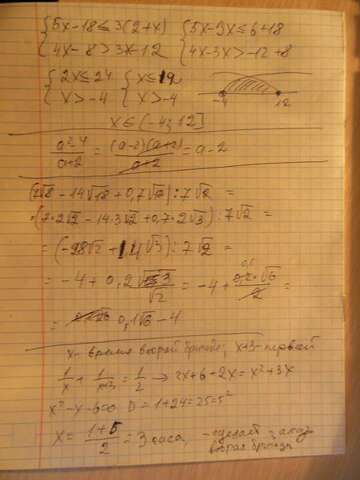 {5x-18≤3(2+x) {5x-3x≤6+18
{4x-8>3x-12 {4x-3x>-12+8
{2x≤24 {x≤12
{x>-4 {x>-4
-4 12
x∈(-4;12]
a²-4/a+2 = (a-2)(a+2)/a+2 = a-2
(7√8-14√18+0,7√12):7√2 =
=(7·2√2-14·3√2+0,7·2√3):7√2 =
=(-28√2+1,4√3):7√2 =
=-4+0,2√3/√2=-4+0,2·√6/2=
= 0,1√6-4
x- время второй бригаде, x+3-первой
1/x + 1/x+3 = 1/2 → 2x+6+2x=x²+3x
x²-x-6=0 D=1+24=25=5²
x= 1+5/2 =3 часа, -сделает заказ
вторая бригада